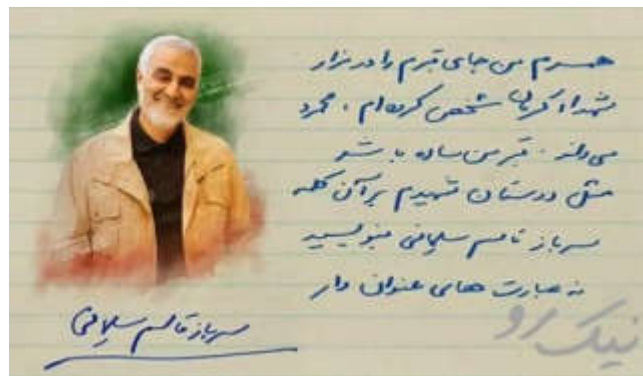 همسرم من جای قبرم را در مزار
شهداء کرمان مشخص کرده‌ام، محمود
می‌داند. قبر من ساده باشد
مثل دوستان شهیدم بر آن کلمه
سرباز قاسم سلیمانی بنویسید
نه عبارت‌های عنوان‌دار
سرباز قاسم سلیمانی
نیک رو